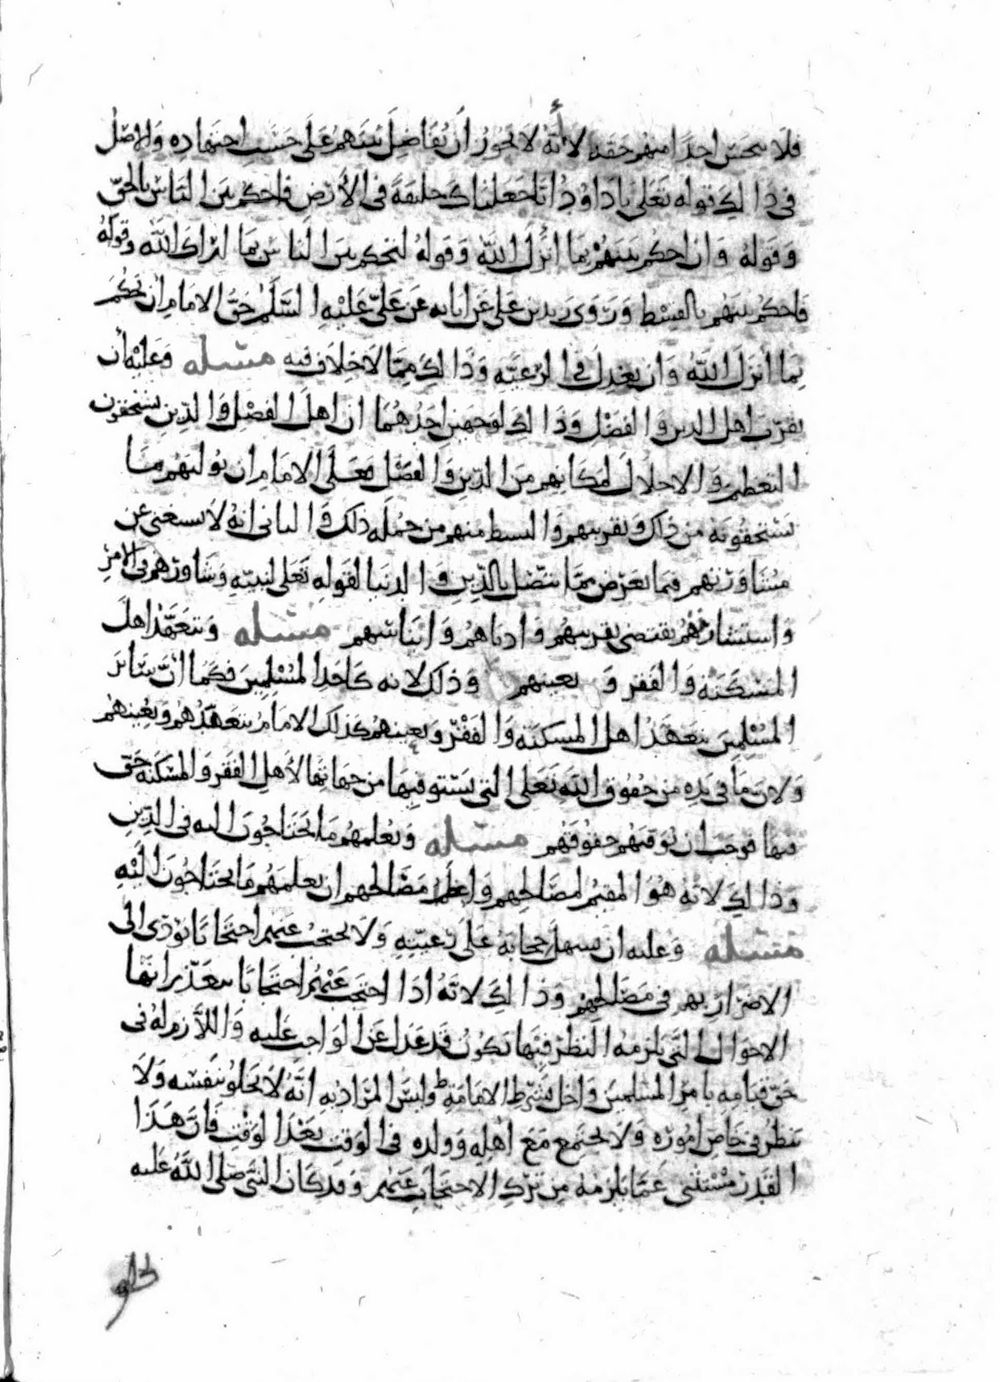 فلا يبخس احدا منهم حقه لأنه لا يجوز أن يفاضل بينهم على حسب اجتهاده والاصل
في ذا لك قوله تعلى يا داوود انا جعلناك خليفة في الأرض فاحكم بين الناس بالحق
وقوله وان احكم بينهم بما أنزل الله وقوله لتحكم بين الناس بما اراك الله وقوله
فاحكم بينهم بالقسط وروى زيد بن علي عن ابايه عن علي عليه السلم حق الامام ان يحكم
بما أنزل الله وان يعدل في الرعية وذا لك مما لا خلاف فيه مسئله وعليه أن
يقرب اهل الدين والفضل وذا لك لوجهين احدهما ان اهل الفضل والدين يستحقون
التعظيم والاجلال لمكانهم من الدين والفضل فعلى الامام ان يوليهم ما
يستحقونه من ذلك وتقريبهم والبسط منهم من جمله ذلك والثاني انه لا يستغني عن
مشاورتهم فيما يعرض مما يتصل بالدين والدنيا لقوله تعلى لنبيه وشاورهم في الامر
واستشارتهم يقتضي تقريبهم وادناهم وايناسهم مسئله ويتعهد اهل
المسكنة والفقر و يعينهم وذلك لانه كاحد المسلمين فكما ان سائر
المسلمين يتعهد اهل المسكنة والفقر ويعينهم كذلك الامام يتعهدهم ويعينهم
ولان ما في يده من حقوق الله تعلى التي يستوفيها من جهاتها لأهل الفقر والمسكنة حق
فيها فوجب ان يوفيهم حقوقهم مسئله ويعلمهم ما يحتاجون اليه في الدين
وذا لك لانه هو المقيم لمصالحهم واعظم مصالحهم ان يعلمهم ما يحتاجون اليه
مسئله وعليه ان يسهل حجابه على رعيته ولا يحتجب عنهم احتجابا يؤدى الى
الاضرار بهم في مصالحهم وذا لك لانه اذا احتجب عنهم احتجابا يتعذر انها
الاحوال التي يلزمه النظر فيها يكون قد عدل عن الواجب عليه واللازم له في
حق قيامه بامر المسلمين واخل بشرط الامامة وليس المراد به انه لا يخلو بنفسه ولا
ينظر في خاص اموره ولا يجتمع مع اهله وولده في الوقت بعد الوقت فان هذا
القدر مستثنى عما يلزمه من ترك الاحتجاب عنهم وقد كان النبي صلى الله عليه
يخلو